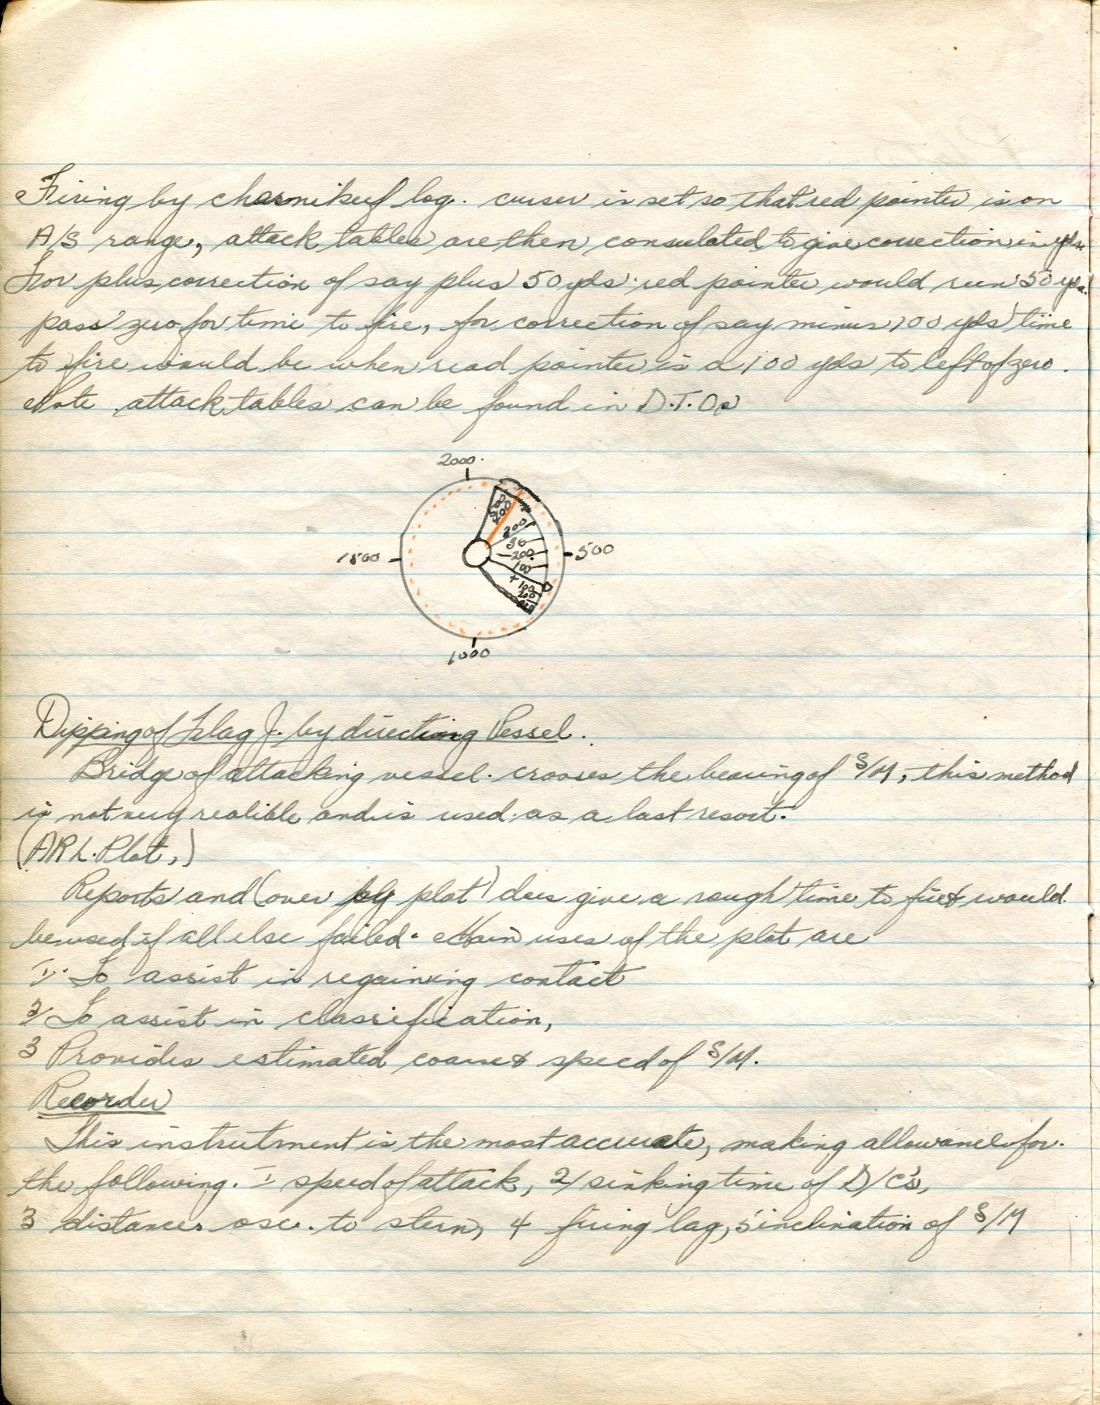 Firing by chernikeef log. curser is set so that red pointer is on
A/S range, attack tables are then consulated to give correction in yds.
For plus correction of say plus 50 yds. red pointer would run 50 yds.
pass zero for time to fire, for correction of say minus 100 yds time
to fire would be when read pointer is a 100 yds to left of zero.
Note attack tables can be found in D.T.O's
2000
1500
500
200
30
200
100
+100
1000
Dipping of Flag J. by directing Vessel.
Bridge of attacking vessel. crosses the bearing of S/M, this method
is not very realible and is used as a last resort.
(ARL. Plot,)
Reports and (over plot) does give a rough time to fire & would
be used if all else failed. Main uses of the plot are
1/. To assist in regaining contact
2/ To assist in classification,
3 Provides estimated course & speed of S/M.
Recorder
This instrutment is the most accurate, making allowance for.
the following. 1/ speed of attack, 2/ sinking time of D/C's,
3 distances osc. to stern, 4 firing lag, 5 inclination of S/M